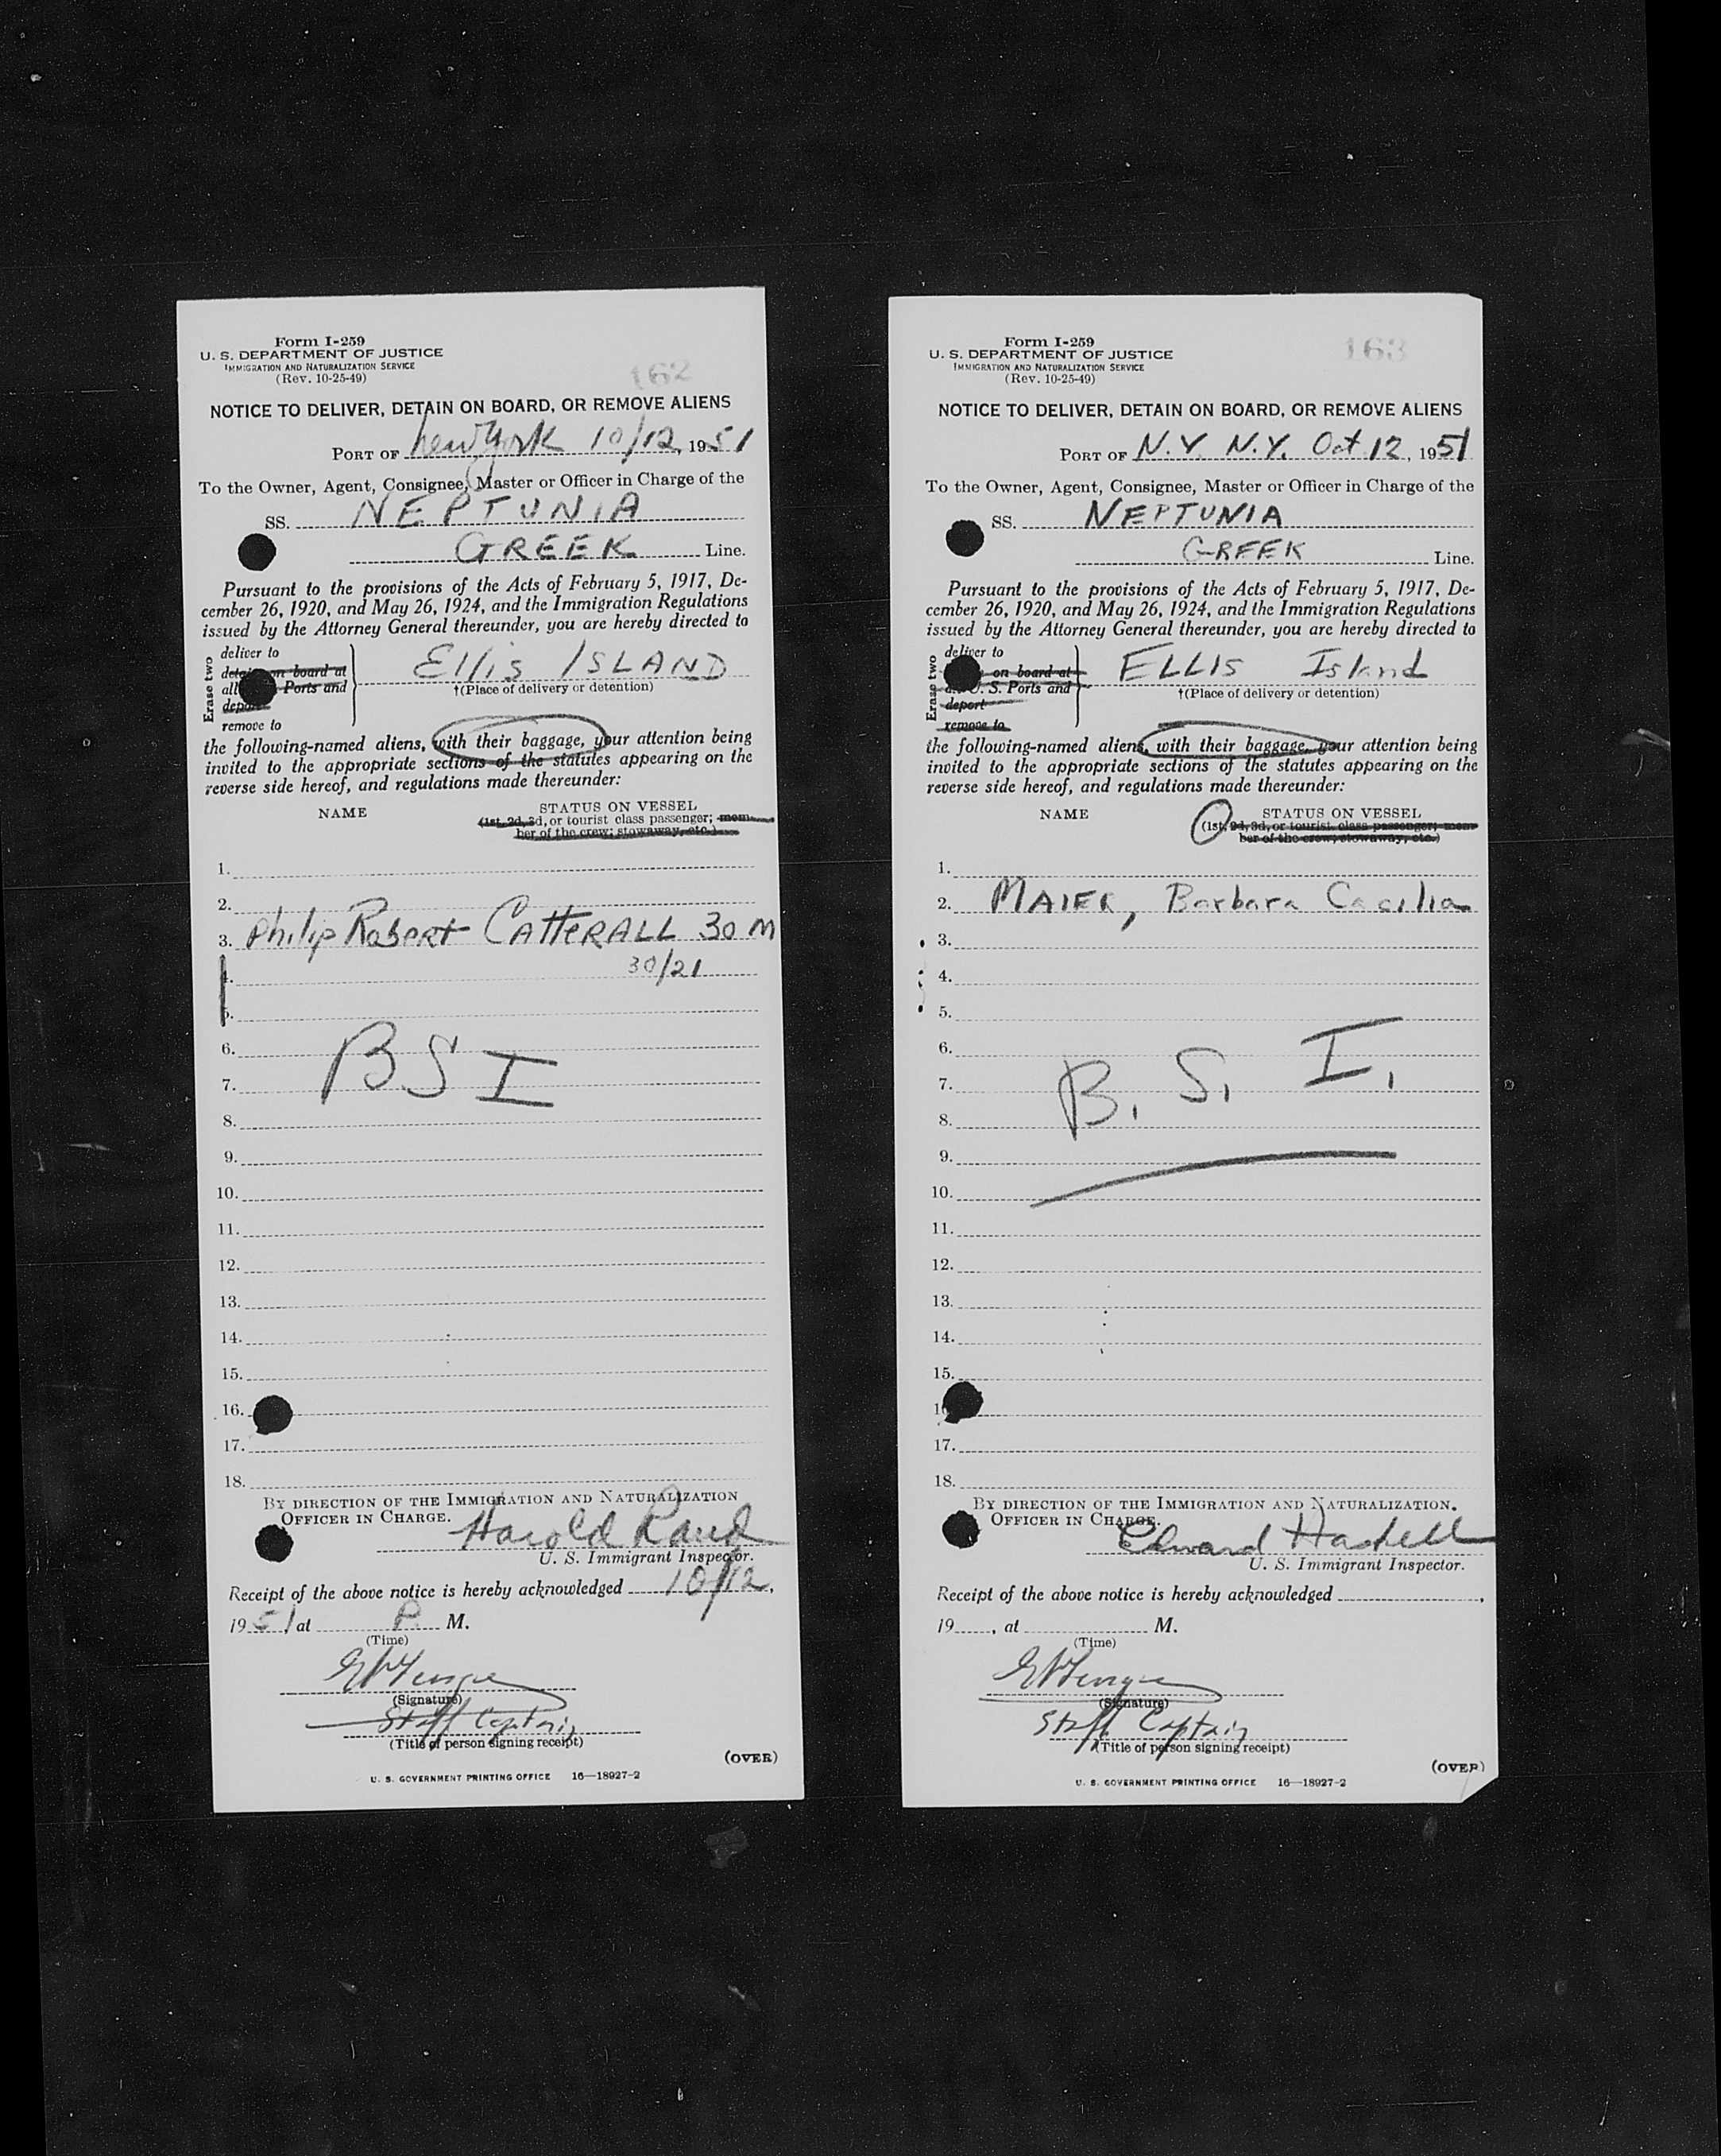 Form I-259
U. S. DEPARTMENT OF JUSTICE
IMMIGRATION AND NATURALIZATION SERVICE
(Rev. 10-25-49)
162
NOTICE TO DELIVER, DETAIN ON BOARD, OR REMOVE ALIENS
PORT OF New York 10/12, 1951
To the Owner, Agent, Consignee, Master or Officer in Charge of the
SS. NEPTUNIA
GREEK Line.
Pursuant to the provisions of the Acts of February 5, 1917, De-
cember 26, 1920, and May 26, 1924, and the Immigration Regulations
issued by the Attorney General thereunder, you are hereby directed to
Erase two
deliver to
on board at
all Ports and
remove to
Ellis ISLAND
†(Place of delivery or detention)
the following-named aliens, with their baggage, your attention being
invited to the appropriate sections of the statutes appearing on the
reverse side hereof, and regulations made thereunder:
NAME
STATUS ON VESSEL
(1st, 2d, 3d, or tourist class passenger; mem-
ber of the crew; stowaway, etc.)
1.
2.
3. Philip Robert CATTERALL 30 M
4. 30/21
5.
6.
BSI
7.
8.
9.
10.
11.
12.
13.
14.
15.
16.
17.
18.
BY DIRECTION OF THE IMMIGRATION AND NATURALIZATION
OFFICER IN CHARGE.
Harold Rand
U. S. Immigrant Inspector.
Receipt of the above notice is hereby acknowledged 10/12,
1951 at P. M.
(Time)
(Signature)
Staff Captain
(Title of person signing receipt)
(OVER)
U. S. GOVERNMENT PRINTING OFFICE 16—18927-2
Form I-259
U. S. DEPARTMENT OF JUSTICE
IMMIGRATION AND NATURALIZATION SERVICE
(Rev. 10-25-49)
163
NOTICE TO DELIVER, DETAIN ON BOARD, OR REMOVE ALIENS
PORT OF N.Y. N.Y. Oct 12, 1951
To the Owner, Agent, Consignee, Master or Officer in Charge of the
SS. NEPTUNIA
GREEK Line.
Pursuant to the provisions of the Acts of February 5, 1917, De-
cember 26, 1920, and May 26, 1924, and the Immigration Regulations
issued by the Attorney General thereunder, you are hereby directed to
Erase two
deliver to
on board at
U. S. Ports and
deport
remove to
ELLIS Island
†(Place of delivery or detention)
the following-named aliens, with their baggage, your attention being
invited to the appropriate sections of the statutes appearing on the
reverse side hereof, and regulations made thereunder:
NAME
STATUS ON VESSEL
(1st, 2d, 3d, or tourist class passenger; mem-
ber of the crew; stowaway, etc.)
1.
2. MAIER, Barbara Cacilia
3.
4.
5.
6.
7.
B. S. I.
8.
9.
10.
11.
12.
13.
14.
15.
17.
18.
BY DIRECTION OF THE IMMIGRATION AND NATURALIZATION
OFFICER IN CHARGE.
Edward Haskell
U. S. Immigrant Inspector.
Receipt of the above notice is hereby acknowledged
19 , at M.
(Time)
(Signature)
Staff Captain
(Title of person signing receipt)
(OVER)
U. S. GOVERNMENT PRINTING OFFICE 16—18927-2